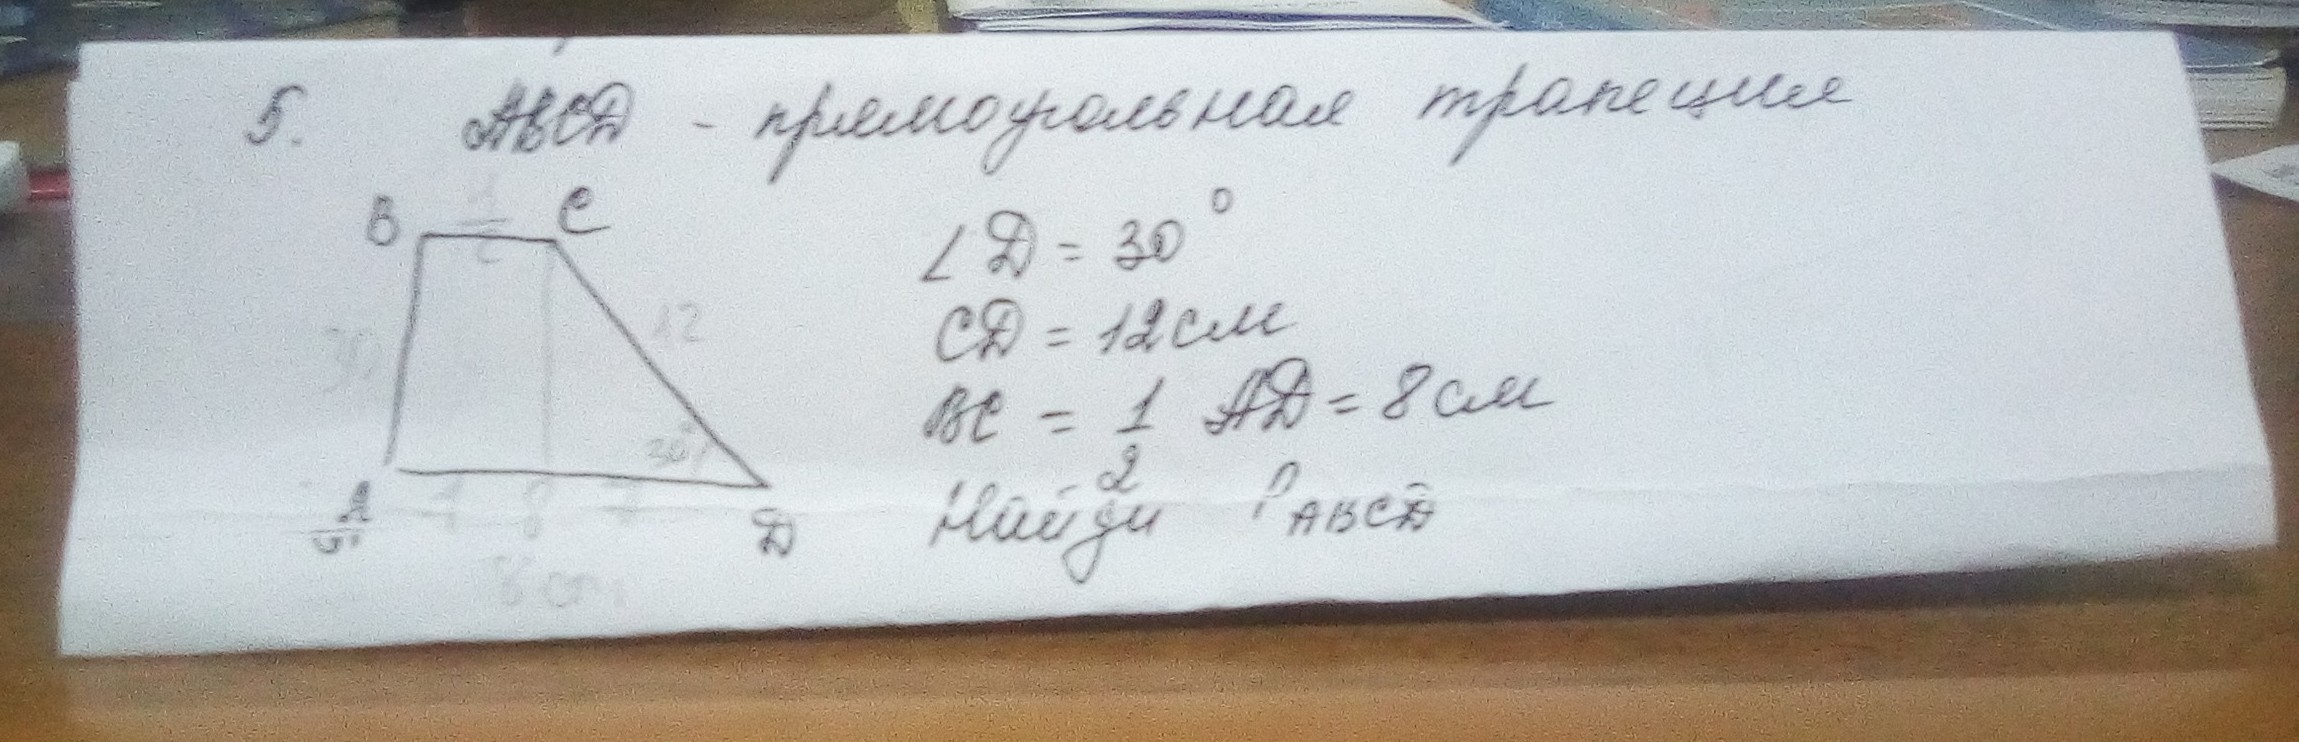 5. ABCD - прямоугольная трапеция
B C
∠D = 30°
CD = 12см
12
BC = 1/2 AD = 8см
30°
A D
Найди P ABCD
8 см